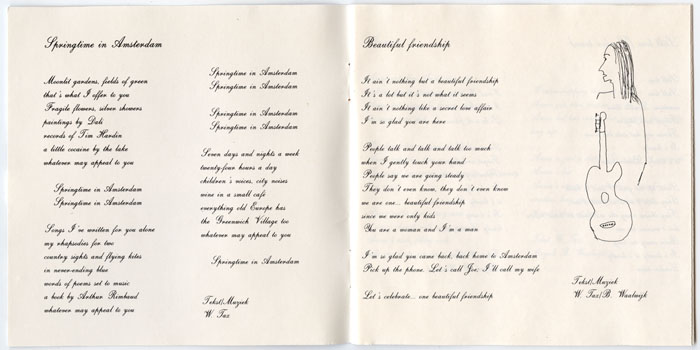 Springtime in Amsterdam
Moonlit gardens, fields of green
that's what I offer to you
Fragile flowers, silver showers
paintings by Dali
records of Tim Hardin
a little cocaine by the lake
whatever may appeal to you
Springtime in Amsterdam
Springtime in Amsterdam
Songs I've written for you alone
my rhapsodies for two
country sights and flying kites
in never-ending blue
words of poems set to music
a book by Arthur Rimbaud
whatever may appeal to you
Springtime in Amsterdam
Springtime in Amsterdam
Springtime in Amsterdam
Springtime in Amsterdam
Seven days and nights a week
twenty-four hours a day
children's voices, city noises
wine in a small café
everything old Europe has
the Greenwich Village too
whatever may appeal to you
Springtime in Amsterdam
Tekst/Muziek
W. Tax
Beautiful friendship
It ain't nothing but a beautiful friendship
It's a lot but it's not what it seems
It ain't nothing like a secret love affair
I'm so glad you are here
People talk and talk and talk too much
when I gently touch your hand
People say we are going steady
They don't even know, they don't even know
we are one... beautiful friendship
since we were only kids
You are a woman and I'm a man
I'm so glad you came back, back home to Amsterdam
Pick up the phone. Let's call Joe, I'll call my wife
Let's celebrate... one beautiful friendship
Tekst/Muziek
W. Tax/B. Waalwijk